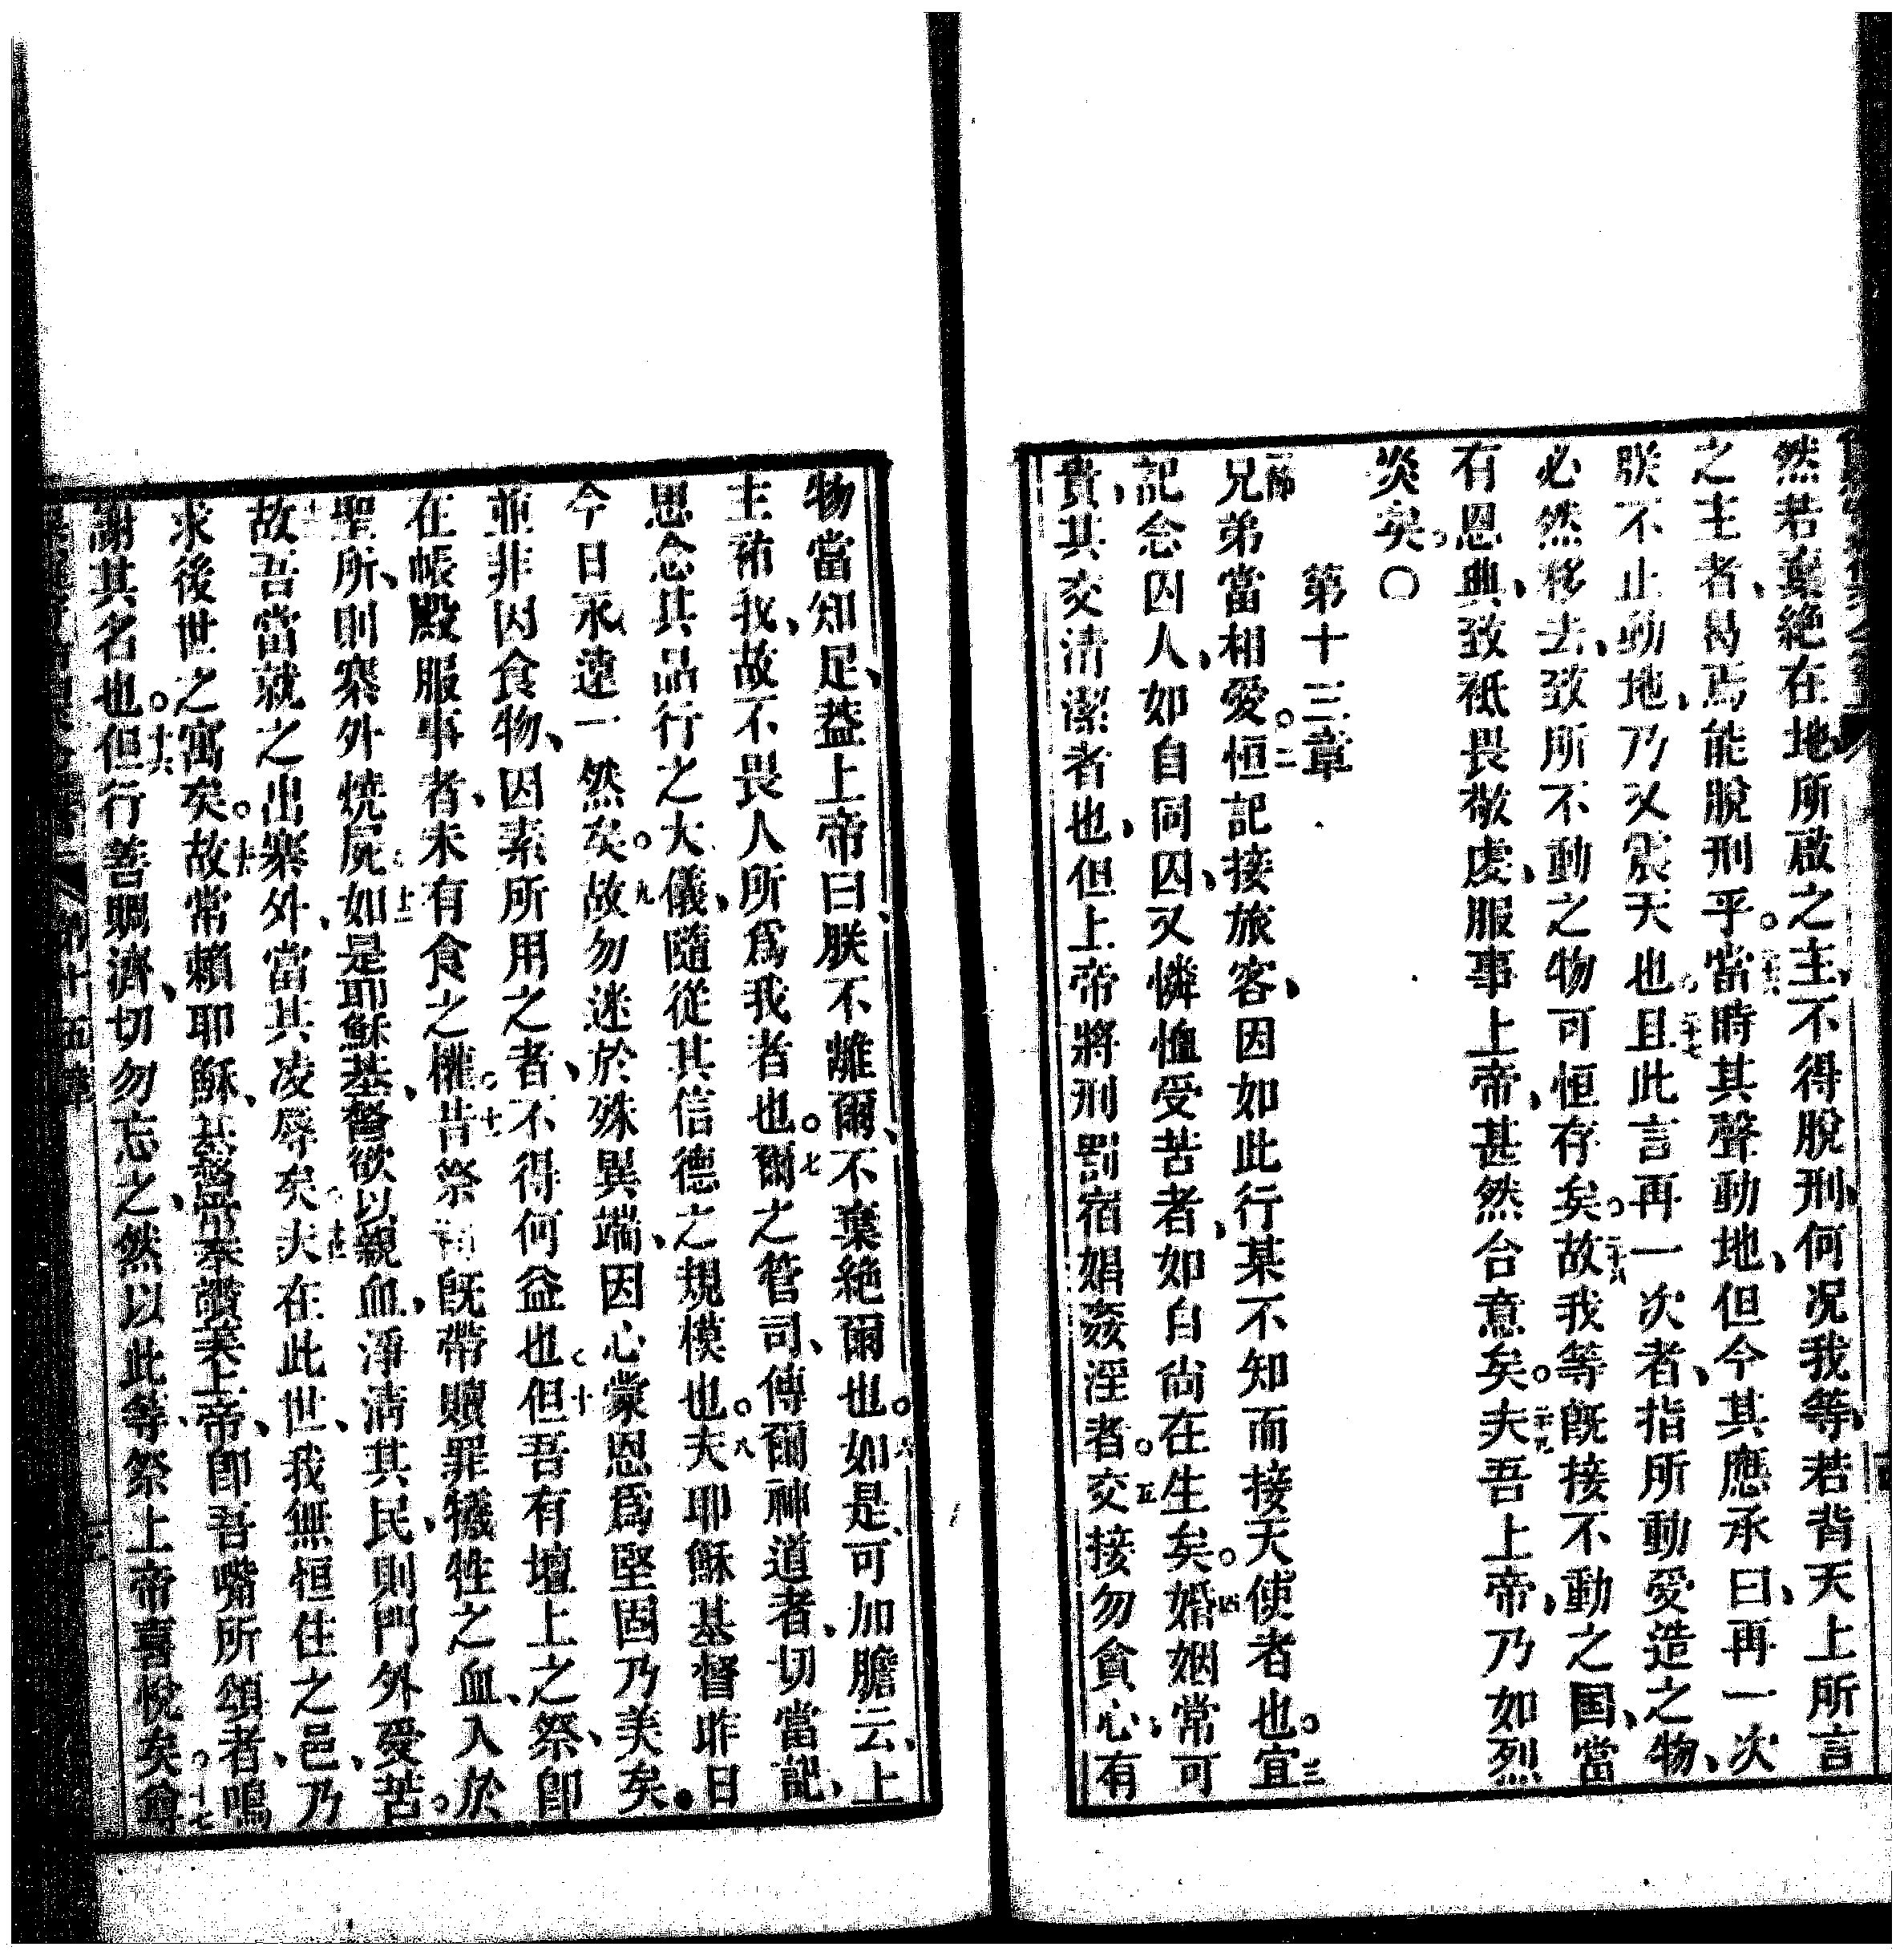 然若棄絕在地所啟之主、不得脫刑、何况我等、若背天上所言
之主者、曷焉能脫刑乎。二十六當時其聲動地、但今其應承曰、再一次
朕不止動地、乃又震天也。二十七且此言再一次者、指所動受造之物、
必然移去、致所不動之物可恒存矣。二十八故我等既接不動之国、當
有恩典、致祗畏敬虔、服事上帝、甚然合意矣。二十九夫吾上帝、乃如烈
炎矣。〇
第十三章
一節兄弟當相愛。二恒記接旅客、因如此行某不知而接天使者也。三宜
記念囚人、如自同囚、又憐恤受苦者、如自尚在生矣。四婚姻常可
貴、其交清潔者也、但上帝將刑罰宿娼姦淫者。五交接勿貪心、有
物當知足、蓋上帝曰、朕不離爾、不棄絕爾也。六如是、可加膽云、上
主祐我、故不畏人所爲我者也。七爾之管司、傳爾神道者、切當記、
思念其品行之大儀、隨從其信德之規模也。八夫耶穌基督昨日
今日永遠一然矣。九故勿迷於殊異端、因心蒙恩爲堅固乃美矣。
並非因食物、因素所用之者、不得何益也。十但吾有壇上之祭、卽
在帳殿服事者、未有食之權。十一昔祭 既帶贖罪犧牲之血、入於
聖所、則寨外燒屍。十二如是耶穌基督欲以親血、淨淸其民、則門外受苦。
十三故吾當就之出寨外、當其凌辱矣。十四夫在此世、我無恒住之邑、乃
求後世之寓矣。十五故常賴耶穌、基督常奉讚美上帝、卽吾嘴所頌者、鳴
謝其名也。十六但行善賙濟、切勿忘之、然以此等祭上帝喜悅矣。十七
第十三章